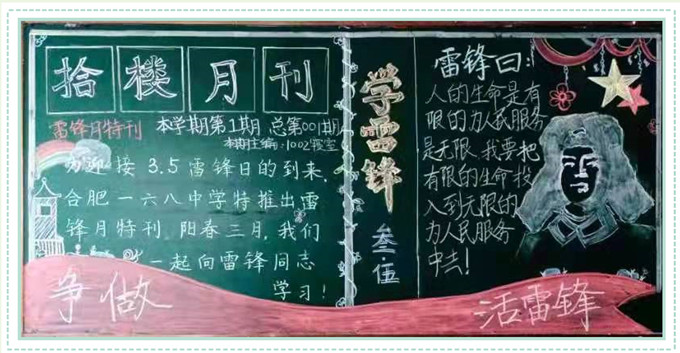 拾楼月刊
雷锋月特刊 本学期第1期 总第001期
本期主编：1002寝室
为迎接3.5雷锋日的到来，
合肥一六八中学特推出雷
锋月特刊.阳春三月，我们
一起向雷锋同志
学习！
争做
学雷锋
叁·伍
雷锋曰：
人的生命是有
限的为人民服务
是无限、我要把
有限的生命投
入到无限的
为人民服务
中去！
活雷锋